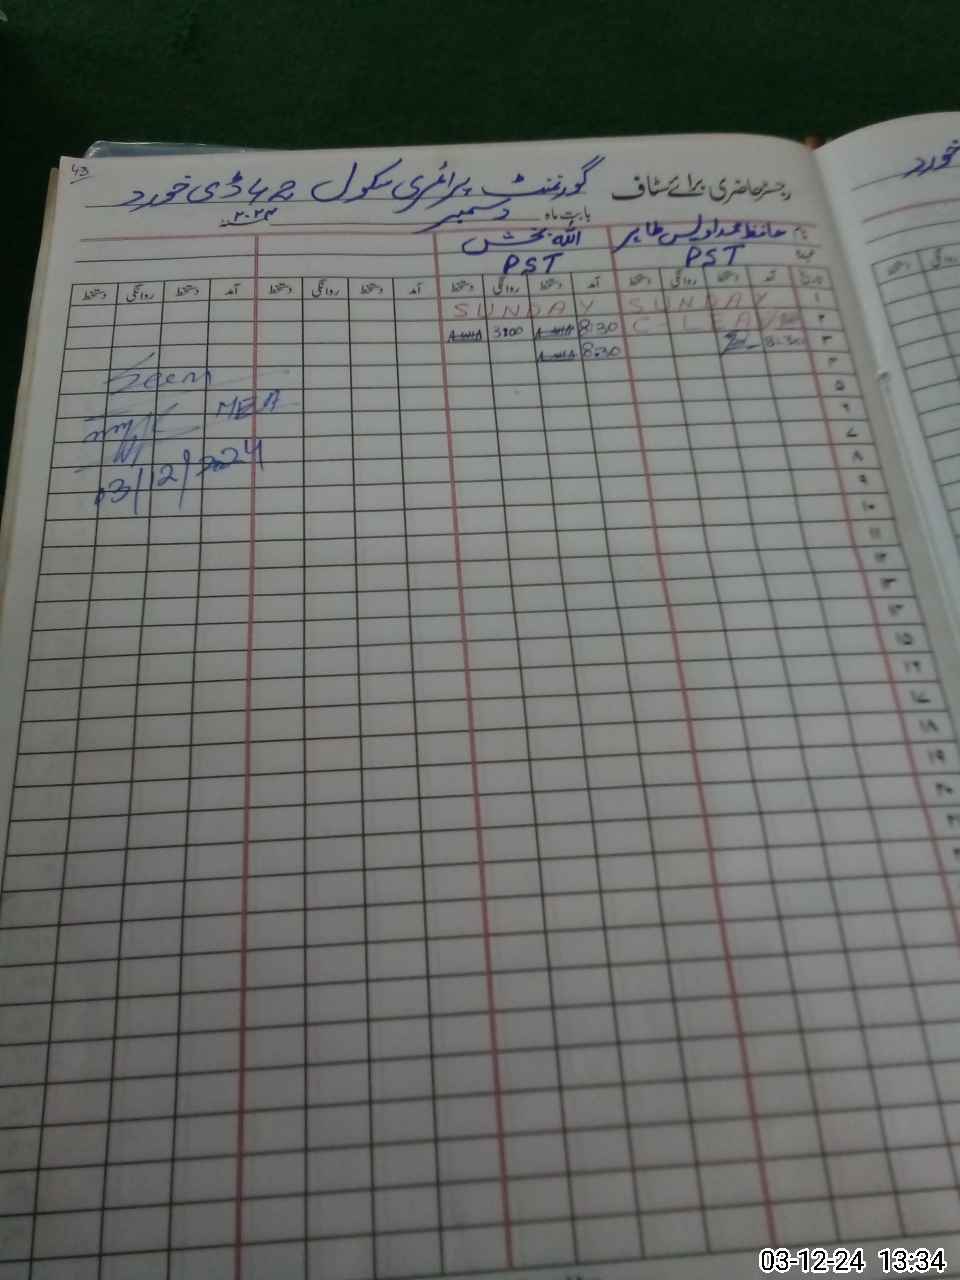 43
رجسٹر حاضری برائے سٹاف گورنمنٹ پرائمری سکول
بابت ماہ دسمبر ۲۰۲۴
نام حافظ محمد اویس طاہر اللہ بخش
عہدہ PST PST
تاریخ آمد دستخط روانگی دستخط آمد دستخط روانگی دستخط آمد دستخط روانگی دستخط آمد دستخط روانگی دستخط
۱ SUNDAY SUNDAY
۲ C-LEAVE 8:30 3:00
۳ 8:30 8:30
۴
۵
۶
۷
۸
۹
۱۰
۱۱
۱۲
۱۳
۱۴
۱۵
۱۶
۱۷
۱۸
۱۹
۲۰
Seen
MEA
03/12/2024
خورد
دستخط روانگی
03-12-24 13:34